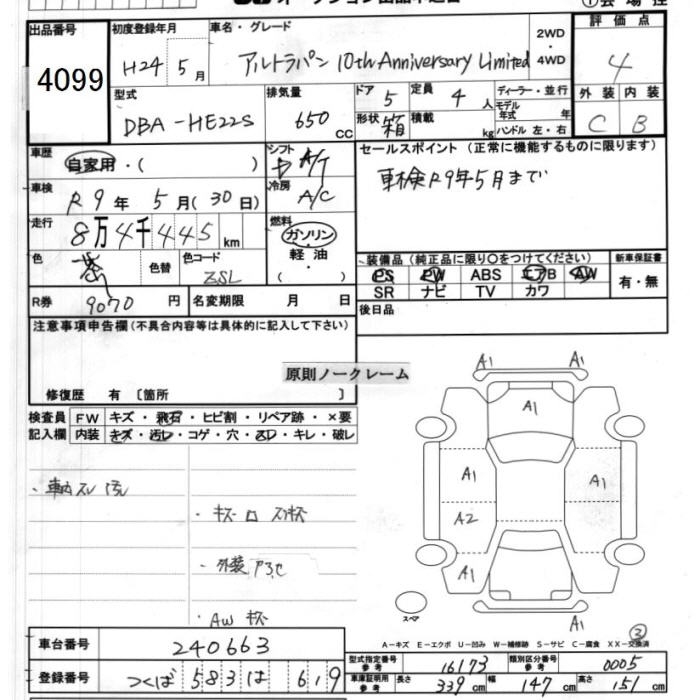 出品番号
4099
初度登録年月
H24年5月
車名・グレード
アルトラパン 10th Anniversary Limited
2WD
・
4WD
評価点
4
型式
DBA-HE22S
排気量
650 CC
ドア 5
定員 4 人
ディーラー・並行
モデル年式 年
形状 箱
積載 kg
ハンドル 左・右
外装 内装
C B
車歴
自家用・( )
シフト
A/T
セールスポイント (正常に機能するものに限ります)
車検R9年5月まで
車検
R9年 5月(30日)
冷房
A/C
走行
8万4千445 km
燃料
ガソリン
・
軽油
・
( )
色
茶
色替
色コード
ZSL
装備品(純正品に限り〇をつけてください)
PS PW ABS エアB AW
SR ナビ TV カワ
新車保証書
有・無
R券 9070 円
名変期限 月 日
後日品
注意事項申告欄(不具合内容等は具体的に記入して下さい)
原則ノークレーム
修復歴 有 〔箇所 〕
検査員
記入欄
FW キズ・飛石・ヒビ割・リペア跡・×要
内装 キズ・汚レ・コゲ・穴・スレ・キレ・破レ
・車内スレ 汚レ
・キズ
・外装
・AW キズ
A1 A1
A1
A1 A1
A2
A1
A1
スペア
A-キズ E-エクボ U-凹み W-補修跡 S-サビ C-腐食 XX-交換済
車台番号
240663
登録番号
つくば 583 は 619
型式指定番号
参考
16173
類別区分番号
参考
0005
車庫証明用
参考
長さ 339 cm
幅 147 cm
高さ 151 cm